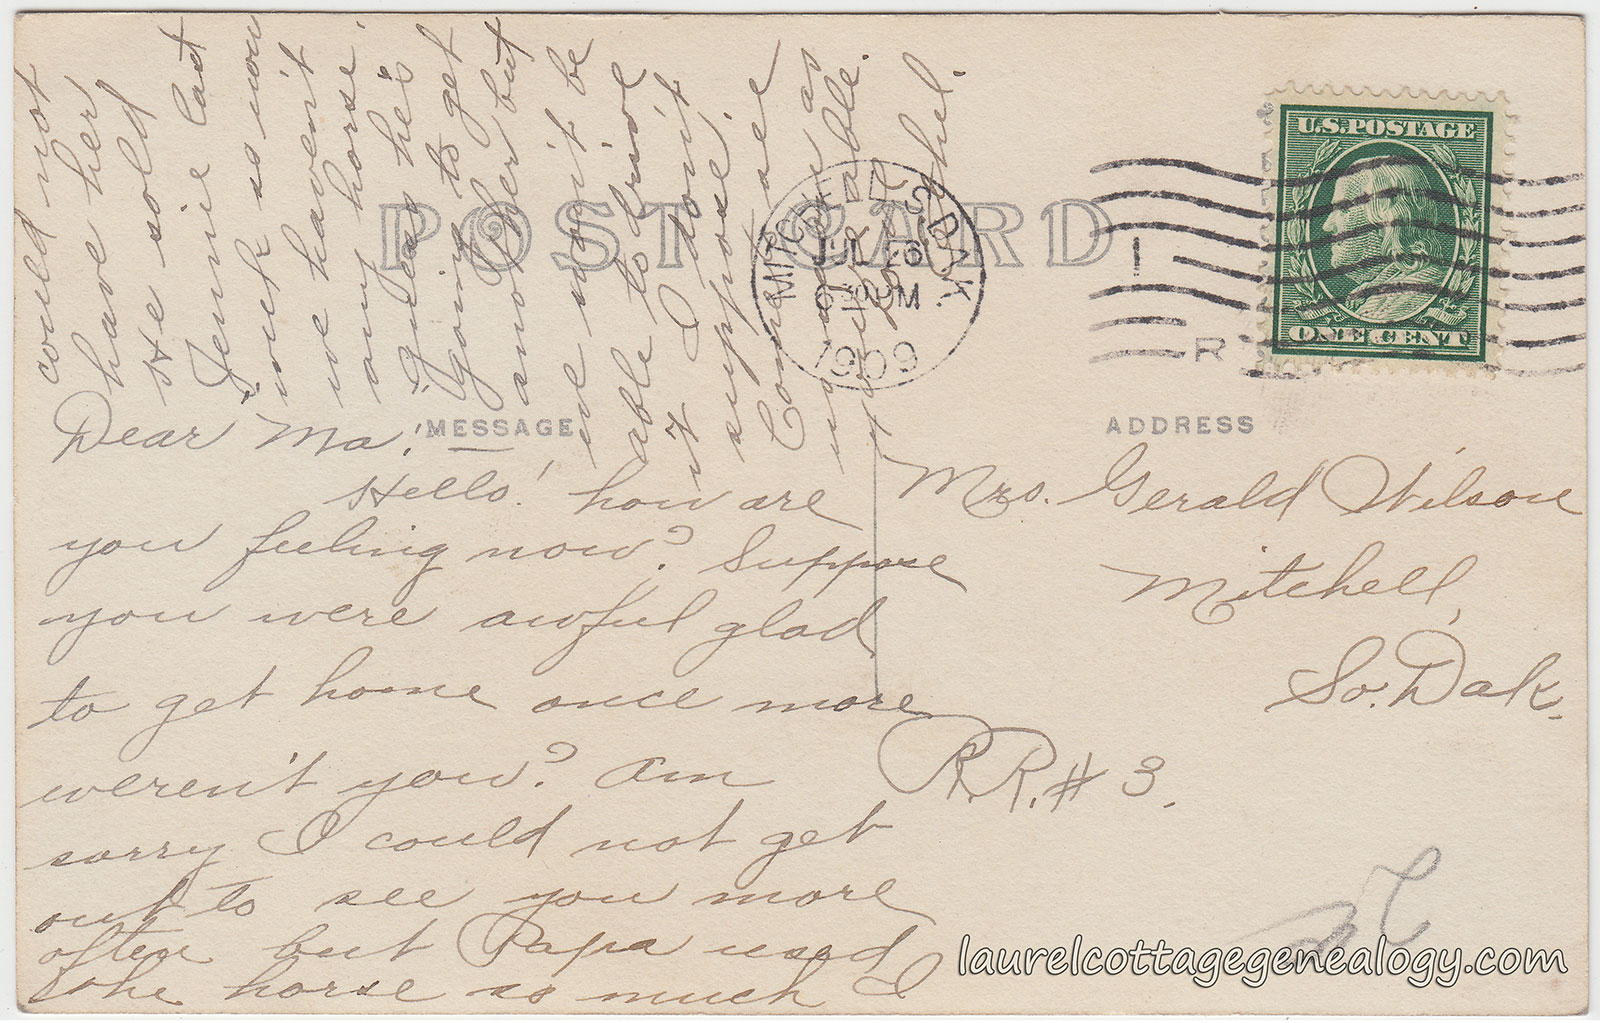 POST CARD
MESSAGE
ADDRESS
U.S. POSTAGE
ONE CENT
MITCHELL, S. DAK.
JUL 26
6 PM
1909
1
R
Dear Ma!
Hello! how are
you feeling now? Suppose
you were awful glad
to get home once more
weren't you? Am
sorry I could not get
out to see you more
often but Papa used
the horse so much I
could not
have her
He sold
Jennie last
week so now
we haven't
any horse.
guess he's
going to get
another but
we won't be
able to drive
it I don't
suppose.
Come as
soon as
you're able.
Ethel.
Mrs. Gerald Wilson
Mitchell,
So. Dak.
R.R. # 3.
laurelcottagegenealogy.com